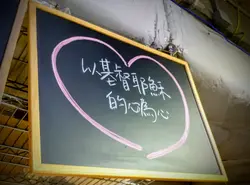 以基督耶穌
的心為心